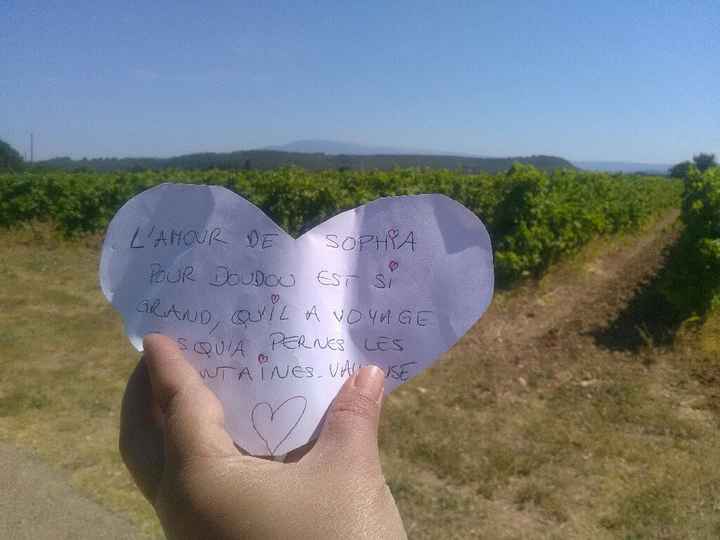 L'AMOUR DE SOPHIA
POUR DOUDOU EST SI
GRAND, QU'IL A VOYAGE
SQU'A PERNES LES
NTAINES-